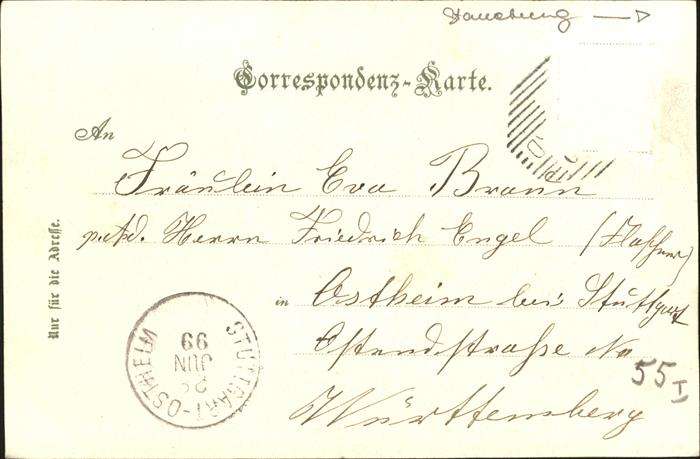 Correspondenz-Karte.
An
Fräulein Eva Braun
p. Ad. Herrn Friedrich Engel (Flaschner)
in Ostheim bei Stuttgart
Ostendstraße No
55 I
Württemberg
Nur für die Adresse.
STUTTGART-OSTHEIM
JUN
99